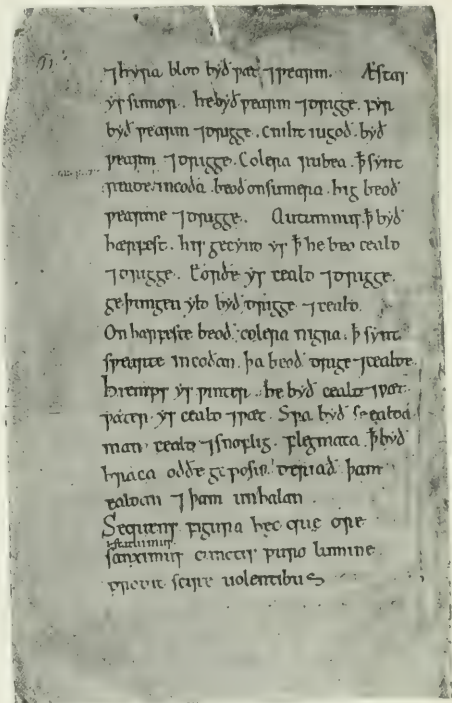 ⁊ hyra blod byð ƿæt ⁊ ƿearm. Æstas
ys sumor. he byð ƿearm ⁊ drigge. fyr
byð ƿearm ⁊ drigge. cniht iugoð. byð
ƿearm ⁊ drigge. Colera rubea. ꝥ synt
reade incoða. beoð on sumera. hig beoð
ƿearme ⁊ drigge. Autumnus. ꝥ byð
hærfest. his gecynd ys ꝥ he beo ceald
⁊ drigge. Eorðe ys ceald ⁊ drigge.
geþungen yld byð drigge ⁊ ceald.
On hærfeste beoð colera nigra. ꝥ synt
sƿearte incoðan. þa beoð drige ⁊ cealde.
hiemps ys ƿinter. he byð ceald ⁊ ƿæt.
ƿæter ys ceald ⁊ ƿæt. Sƿa byð se ealda
man ceald ⁊ snoflig. flegmata. ꝥ byð
hraca oððe geposu. deriað þam
ealdan ⁊ þam unhalan.
Sequens figura hec que ore
sanximus cunctis puro lumine
scire uolentibus